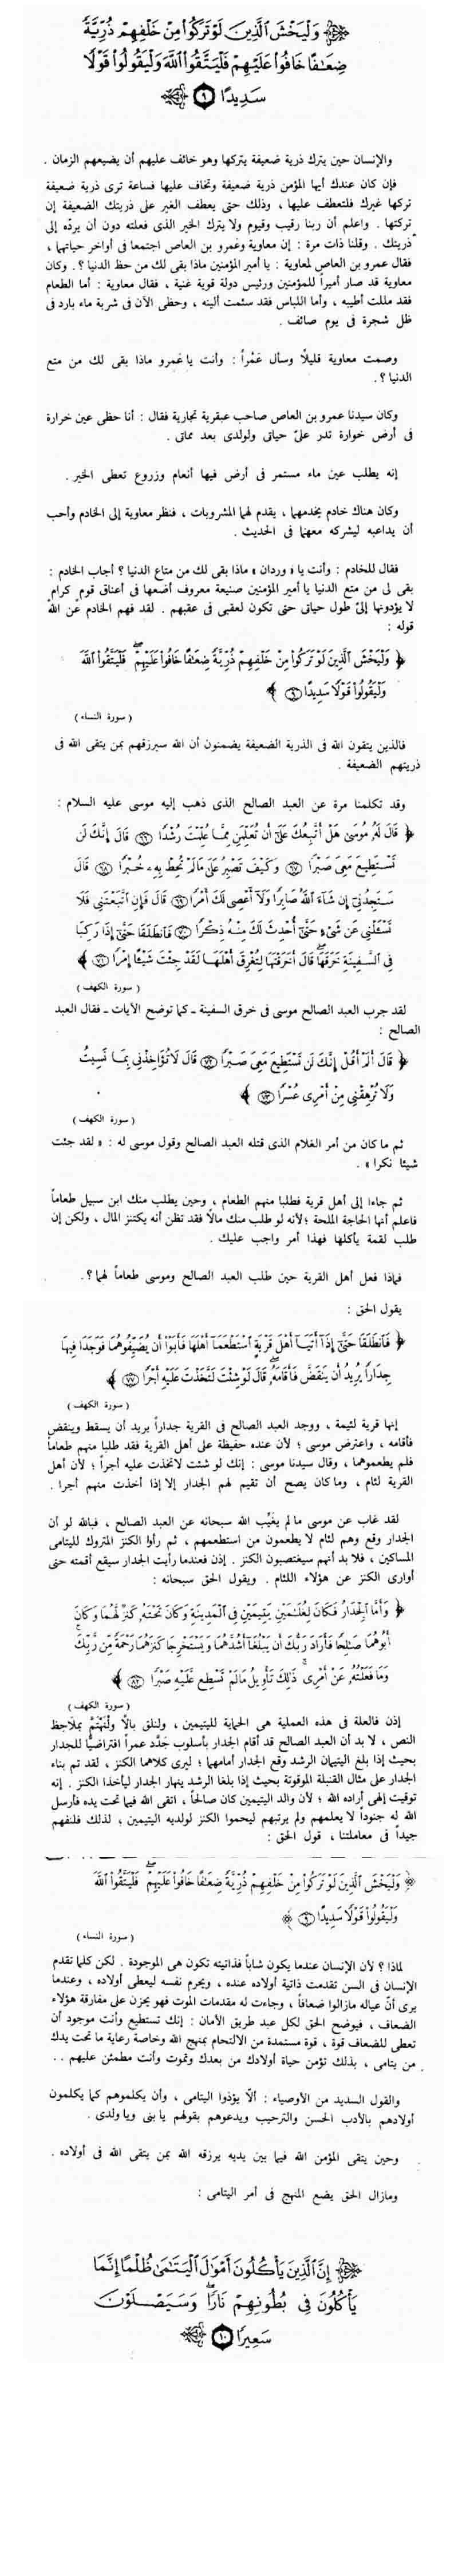 وَلْيَخْشَ الَّذِينَ لَوْ تَرَكُوا مِنْ خَلْفِهِمْ ذُرِّيَّةً
ضِعَافًا خَافُوا عَلَيْهِمْ فَلْيَتَّقُوا اللَّهَ وَلْيَقُولُوا قَوْلًا
سَدِيدًا ٩
والإنسان حين يترك ذرية ضعيفة يتركها وهو خائف عليهم أن يضيعهم الزمان .
فإن كان عندك أيها المؤمن ذرية ضعيفة وتخاف عليها فساعة ترى ذرية ضعيفة
تركها غيرك فلتعطف عليها ، وذلك حتى يعطف الغير على ذريتك الضعيفة إن
تركتها . واعلم أن ربنا رقيب وقيوم ولا يترك الخير الذى فعلته دون أن يردّه إلى
ذريتك . وقلنا ذات مرة : إن معاوية وعمرو بن العاص اجتمعا فى أواخر حياتهما ،
فقال عمرو بن العاص لمعاوية : يا أمير المؤمنين ماذا بقى لك من حظ الدنيا ؟ . وكان
معاوية قد صار أميراً للمؤمنين ورئيس دولة قوية غنية ، فقال معاوية : أما الطعام
فقد مللت أطيبه ، وأما اللباس فقد سئمت ألينه ، وحظى الآن فى شربة ماء بارد فى
ظل شجرة فى يوم صائف .
وصمت معاوية قليلًا وسأل عَمْراً : وأنت يا عَمرو ماذا بقى لك من متع
الدنيا ؟ .
وكان سيدنا عمرو بن العاص صاحب عبقرية تجارية فقال : أنا حظى عين خرارة
فى أرض خوارة تدر علىّ حياتى ولولدى بعد مماتى .
إنه يطلب عين ماء مستمر فى أرض فيها أنعام وزروع تعطى الخير .
وكان هناك خادم يخدمهما ، يقدم لهما المشروبات ، فنظر معاوية إلى الخادم وأحب
أن يداعبه ليشركه معهما فى الحديث .
فقال للخادم : وأنت يا « وردان » ماذا بقى لك من متاع الدنيا ؟ أجاب الخادم :
بقى لى من متع الدنيا يا أمير المؤمنين صنيعة معروف أضعها فى أعناق قوم كرام
لا يؤدونها إلىّ طول حياتى حتى تكون لعقبى فى عقبهم . لقد فهم الخادم عن الله
قوله :
﴿ وَلْيَخْشَ الَّذِينَ لَوْ تَرَكُوا مِنْ خَلْفِهِمْ ذُرِّيَّةً ضِعَافًا خَافُوا عَلَيْهِمْ فَلْيَتَّقُوا اللَّهَ
وَلْيَقُولُوا قَوْلًا سَدِيدًا ٩ ﴾
( سورة النساء )
فالذين يتقون الله فى الذرية الضعيفة يضمنون أن الله سيرزقهم بمن يتقى الله فى
ذريتهم الضعيفة .
وقد تكلمنا مرة عن العبد الصالح الذى ذهب إليه موسى عليه السلام :
﴿ قَالَ لَهُ مُوسَىٰ هَلْ أَتَّبِعُكَ عَلَىٰ أَن تُعَلِّمَنِ مِمَّا عُلِّمْتَ رُشْدًا ٦٦ قَالَ إِنَّكَ لَن
تَسْتَطِيعَ مَعِىَ صَبْرًا ٦٧ وَكَيْفَ تَصْبِرُ عَلَىٰ مَا لَمْ تُحِطْ بِهِ خُبْرًا ٦٨ قَالَ
سَتَجِدُنِى إِن شَاءَ اللَّهُ صَابِرًا وَلَا أَعْصِى لَكَ أَمْرًا ٦٩ قَالَ فَإِنِ اتَّبَعْتَنِى فَلَا
تَسْأَلْنِى عَن شَىْءٍ حَتَّىٰ أُحْدِثَ لَكَ مِنْهُ ذِكْرًا ٧٠ فَانطَلَقَا حَتَّىٰ إِذَا رَكِبَا
فِى السَّفِينَةِ خَرَقَهَا قَالَ أَخَرَقْتَهَا لِتُغْرِقَ أَهْلَهَا لَقَدْ جِئْتَ شَيْئًا إِمْرًا ٧١ ﴾
( سورة الكهف )
لقد جرب العبد الصالح موسى فى خرق السفينة ـ كما توضح الآيات ـ فقال العبد
الصالح :
﴿ قَالَ أَلَمْ أَقُلْ إِنَّكَ لَن تَسْتَطِيعَ مَعِىَ صَبْرًا ٧٢ قَالَ لَا تُؤَاخِذْنِى بِمَا نَسِيتُ
وَلَا تُرْهِقْنِى مِنْ أَمْرِى عُسْرًا ٧٣ ﴾
( سورة الكهف )
ثم ما كان من أمر الغلام الذى قتله العبد الصالح وقول موسى له : « لقد جئت
شيئا نكرا » .
ثم جاءا إلى أهل قرية فطلبا منهم الطعام ، وحين يطلب منك ابن سبيل طعاماً
فاعلم أنها الحاجة الملحة ؛ لأنه لو طلب منك مالًا فقد تظن أنه يكتنز المال ، ولكن إن
طلب لقمة يأكلها فهذا أمر واجب عليك .
فماذا فعل أهل القرية حين طلب العبد الصالح وموسى طعاماً لهما ؟ .
يقول الحق :
﴿ فَانطَلَقَا حَتَّىٰ إِذَا أَتَيَا أَهْلَ قَرْيَةٍ اسْتَطْعَمَا أَهْلَهَا فَأَبَوْا أَن يُضَيِّفُوهُمَا فَوَجَدَا فِيهَا
جِدَارًا يُرِيدُ أَن يَنقَضَّ فَأَقَامَهُ قَالَ لَوْ شِئْتَ لَتَّخَذْتَ عَلَيْهِ أَجْرًا ٧٧ ﴾
( سورة الكهف )
إنها قرية لئيمة ، ووجد العبد الصالح فى القرية جداراً يريد أن يسقط وينقض
فأقامه ، واعترض موسى ؛ لأن عنده حفيظة على أهل القرية فقد طلبا منهم طعاماً
فلم يطعموهما ، وقال سيدنا موسى : إنك لو شئت لاتخذت عليه أجراً ؛ لأن أهل
القرية لئام ، وما كان يصح أن تقيم لهم الجدار إلا إذا أخذت منهم أجرا .
لقد غاب عن موسى ما لم يغيِّب الله سبحانه عن العبد الصالح ، فبالله لو أن
الجدار وقع وهم لئام لا يطعمون من استطعمهم ، ثم رأوا الكنز المتروك لليتامى
المساكين ، فلا بد أنهم سيغتصبون الكنز . إذن فعندما رأيت الجدار سيقع أقمته حتى
أوارى الكنز عن هؤلاء اللئام . ويقول الحق سبحانه :
﴿ وَأَمَّا الْجِدَارُ فَكَانَ لِغُلَامَيْنِ يَتِيمَيْنِ فِى الْمَدِينَةِ وَكَانَ تَحْتَهُ كَنزٌ لَّهُمَا وَكَانَ
أَبُوهُمَا صَالِحًا فَأَرَادَ رَبُّكَ أَن يَبْلُغَا أَشُدَّهُمَا وَيَسْتَخْرِجَا كَنزَهُمَا رَحْمَةً مِّن رَّبِّكَ
وَمَا فَعَلْتُهُ عَنْ أَمْرِى ذَٰلِكَ تَأْوِيلُ مَا لَمْ تَسْطِع عَّلَيْهِ صَبْرًا ٨٢ ﴾
( سورة الكهف )
إذن فالعلة فى هذه العملية هى الحماية لليتيمين ، ولنلق بالًا ولْنَهْتَمَّ بملاحظ
النص ، لا بد أن العبد الصالح قد أقام الجدار بأسلوب جَدَّد عمراً افتراضيًّا للجدار
بحيث إذا بلغ اليتيمان الرشد وقع الجدار أمامهما ؛ ليرى كلاهما الكنز ، لقد تم بناء
الجدار على مثال القنبلة الموقوتة بحيث إذا بلغا الرشد ينهار الجدار ليأخذا الكنز . إنه
توقيت إلهى أراده الله ؛ لأن والد اليتيمين كان صالحاً ، اتقى الله فيما تحت يده فأرسل
الله له جنوداً لا يعلمهم ولم يرتبهم ليحموا الكنز لولديه اليتيمين ؛ لذلك فلنفهم
جيداً فى معاملتنا ، قول الحق :
﴿ وَلْيَخْشَ الَّذِينَ لَوْ تَرَكُوا مِنْ خَلْفِهِمْ ذُرِّيَّةً ضِعَافًا خَافُوا عَلَيْهِمْ فَلْيَتَّقُوا اللَّهَ
وَلْيَقُولُوا قَوْلًا سَدِيدًا ٩ ﴾
( سورة النساء )
لماذا ؟ لأن الإنسان عندما يكون شاباً فذاتيته تكون هى الموجودة . لكن كلما تقدم
الإنسان فى السن تقدمت ذاتية أولاده عنده ، ويحرم نفسه ليعطى أولاده ، وعندما
يرى أنّ عياله مازالوا ضعافاً ، وجاءت له مقدمات الموت فهو يحزن على مفارقة هؤلاء
الضعاف ، فيوضح الحق لكل عبد طريق الأمان : إنك تستطيع وأنت موجود أن
تعطى للضعاف قوة ، قوة مستمدة من الالتحام بمنهج الله وخاصة رعاية ما تحت يدك
من يتامى ، بذلك تؤمن حياة أولادك من بعدك وتموت وأنت مطمئن عليهم . .
والقول السديد من الأوصياء : ألّا يؤذوا اليتامى ، وأن يكلموهم كما يكلمون
أولادهم بالأدب الحسن والترحيب ويدعوهم بقولهم يا بنى ويا ولدى .
وحين يتقى المؤمن الله فيما بين يديه يرزقه الله بمن يتقى الله فى أولاده .
ومازال الحق يضع المنهج فى أمر اليتامى :
إِنَّ الَّذِينَ يَأْكُلُونَ أَمْوَالَ الْيَتَامَىٰ ظُلْمًا إِنَّمَا
يَأْكُلُونَ فِى بُطُونِهِمْ نَارًا وَسَيَصْلَوْنَ
سَعِيرًا ١٠